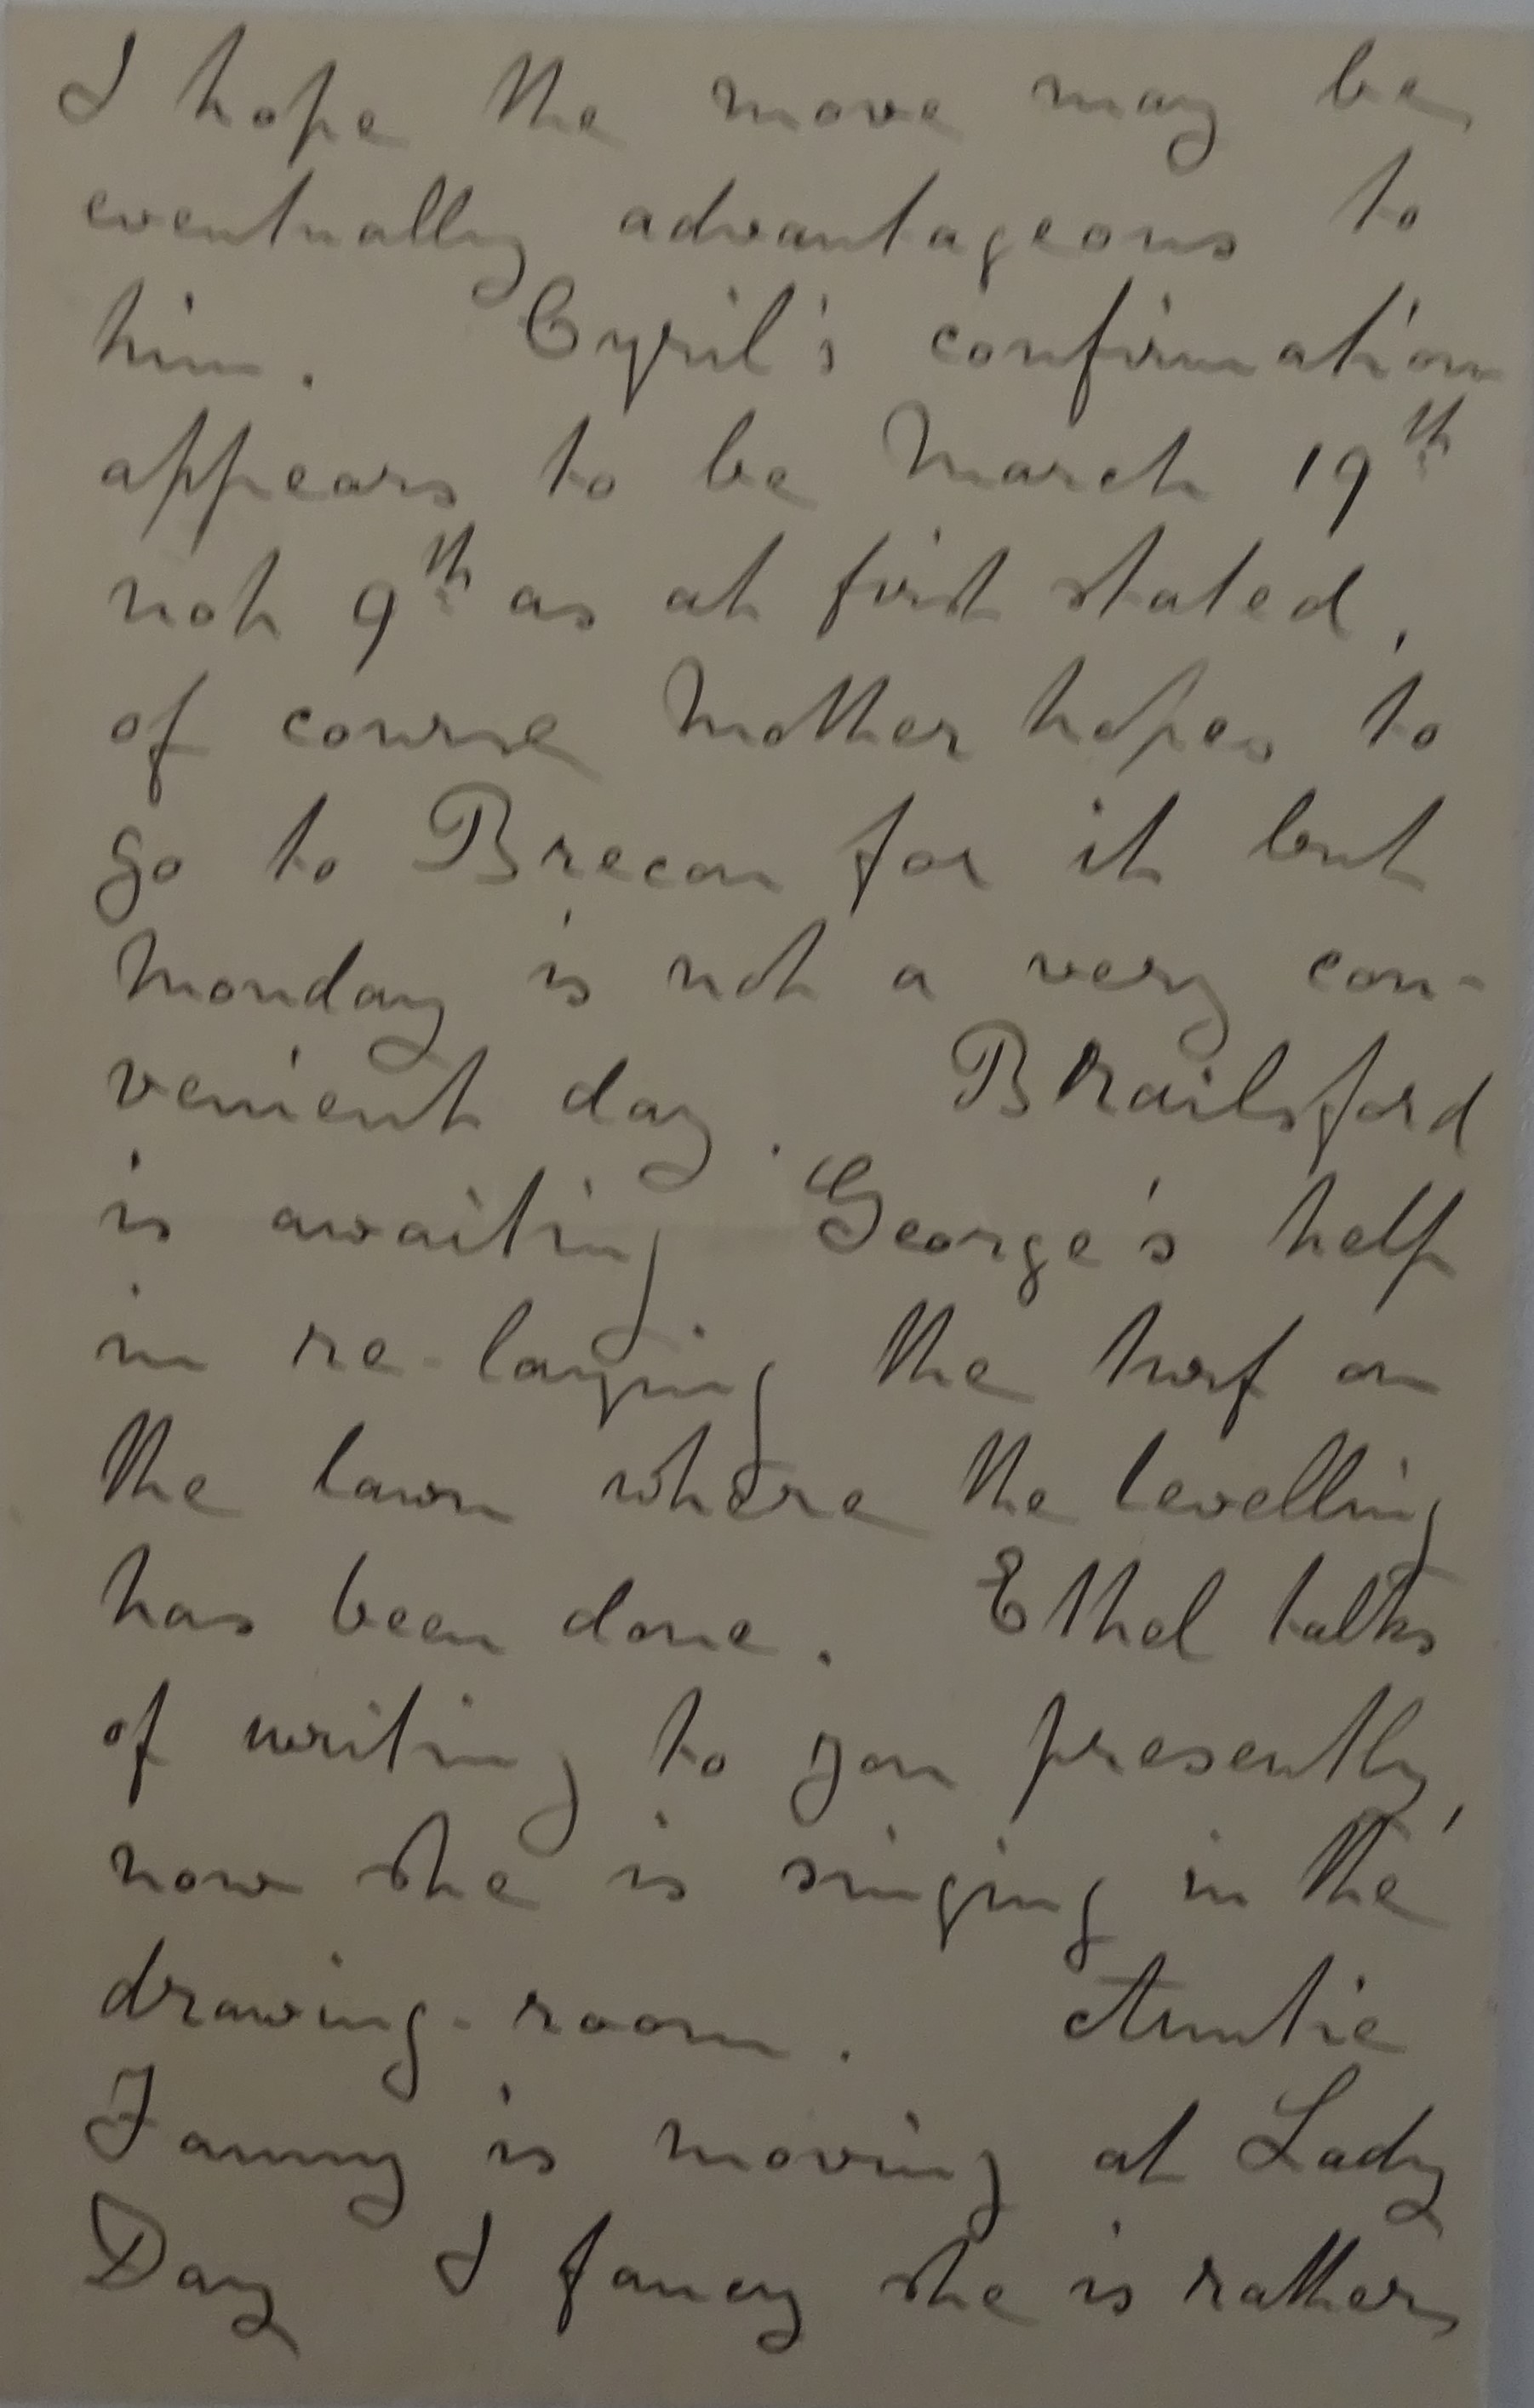 I hope the move may be
eventually advantageous to
him. Cyril's confirmation
appears to be March 19th
not 9th as at first stated,
of course Mother hopes to
go to Brecon for it but
Monday is not a very con-
venient day. Brailsford
is awaiting George's help
in re-laying the turf on
the lawn where the levelling
has been done. Ethel talks
of writing to you presently,
now she is singing in the
drawing-room. Auntie
Fanny is moving at Lady
Day I fancy she is rather